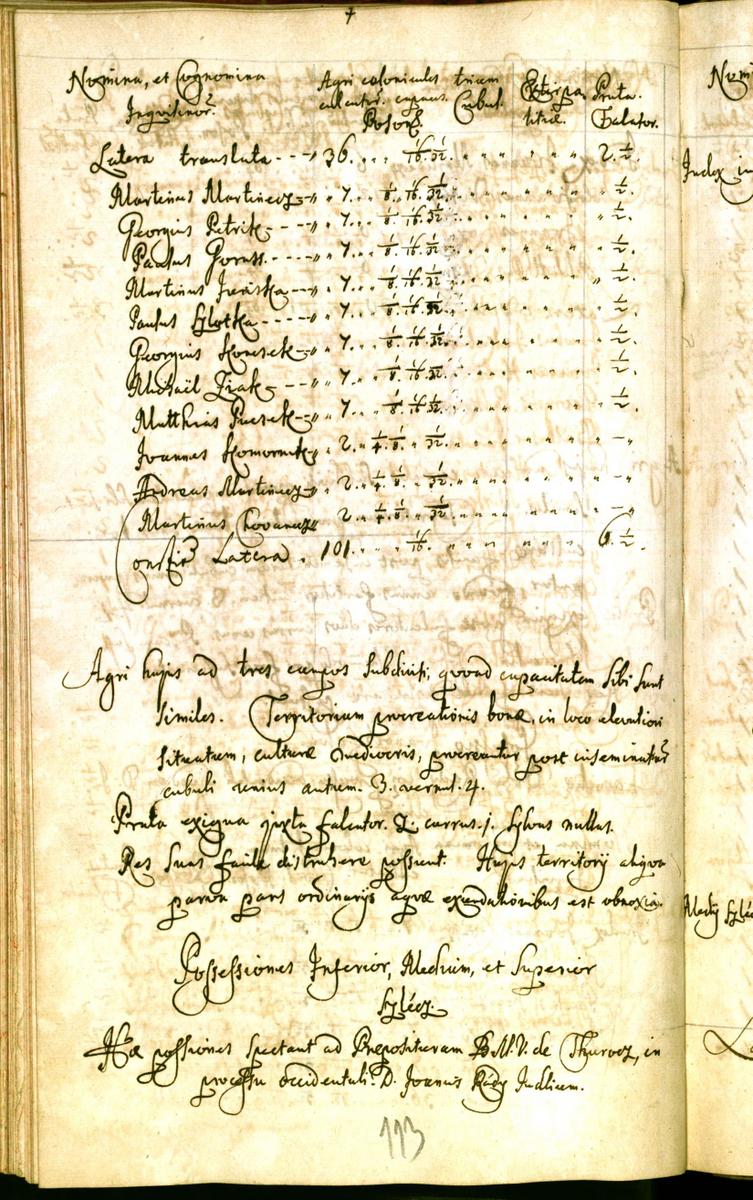 Nomina, et Cognomina Agri coloniales trium Extirpa Prata
Inquilinor. calcatur. campus. Cubul. titiæ. Falcator.
Poson.
Latera translata - - - „ 36. . . . 1/16. 1/32. „ „ „ „ „ 2. 1/2.
Martinus Martinecz - „ „ 7. . . 1/8. 1/16. 1/32. „ „ „ „ „ 1/2.
Georgius Petrik - - „ „ 7. . . 1/8. 1/16. 1/32. „ „ „ „ „ 1/2.
Paulus - - - - „ „ 7. . . 1/8. 1/16. 1/32. „ „ „ „ „ 1/2.
Martinus - - „ „ 7. . . 1/8. 1/16. 1/32. „ „ „ „ „ 1/2.
Paulus Sylotka - - - - „ 7. . . 1/8. 1/16. 1/32. „ „ „ „ „ 1/2.
Georgius - „ „ 7. . . 1/8. 1/16. 1/32. „ „ „ „ „ 1/2.
Michaël Ziak - - - „ „ 7. . . 1/8. 1/16. 1/32. „ „ „ „ „ 1/2.
Matthias - „ „ 7. . . 1/8. 1/16. 1/32. „ „ „ „ „ 1/2.
Joannes Komornik - „ „ 2. „ 1/4. 1/8. „ 1/32. „ „ „ „ „ – „
Andreas Martinecz - „ „ 2. „ 1/4. 1/8. „ 1/32. „ „ „ „ „ – „
Martinus Chovanecz „ 2. „ 1/4. 1/8. „ 1/32. „ „ „ „ „ – „
Latera . 101. . . „ 1/16. „ „ „ „ „ 6. 1/2.
Agri hujus ad tres campos subdivisi, quoad capacitatem sibi sunt
similes. Territorium procreationis bonæ, in loco elevatiori
situatum, culturæ mediocris, procreantur post inseminatur
cubuli unius autum. 3. vernal. 4.
Prata exigua juxta falcator. 2. currus. 1. Sylvas nullas.
Res suas facile distrahere possunt. Hujus territorÿ aliqua
parva pars ordinarÿs aquæ exundationibus est obnoxia.
Possessiones Inferior, Medium, et Superior
Sylécz.
Hæ possiones spectant ad Præposituram B.M.V. de Thurocz, in
processu occidentali D. Joannis Rády Judlium.
113
Nomi
Index in